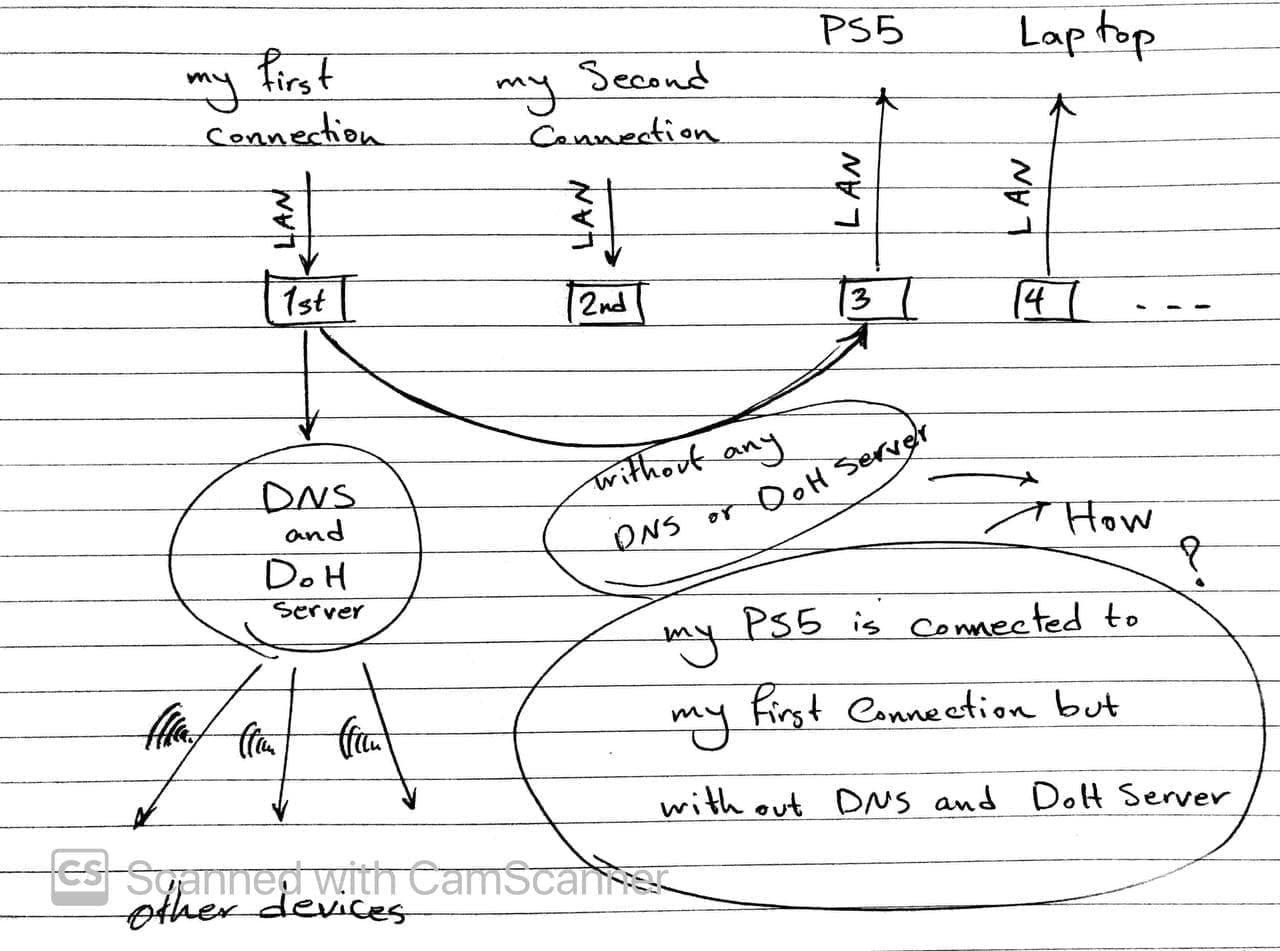 my first
Connection
my Second
Connection
PS5
Laptop
LAN
LAN
LAN
LAN
1st
2nd
3
4
- - -
DNS
and
DoH
Server
without any
DNS or DoH Server
How
?
my PS5 is connected to
my first Connection but
without DNS and DoH Server
other devices
CS Scanned with CamScanner